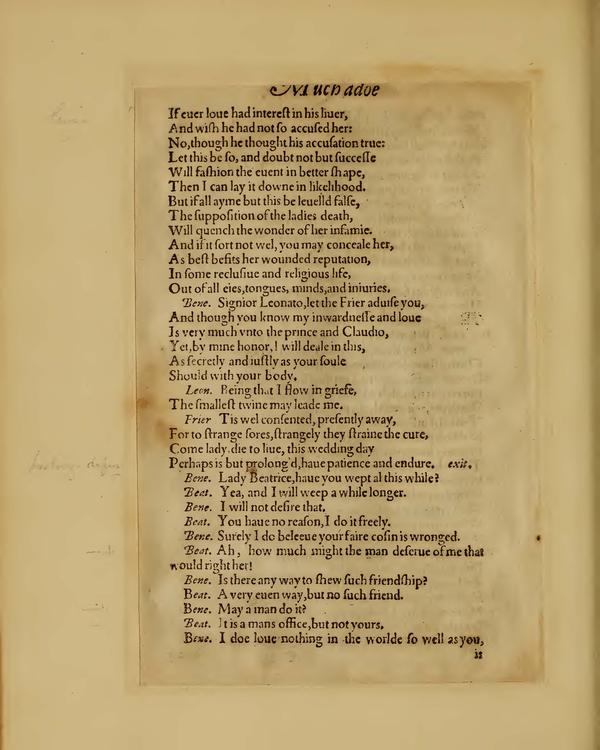 Much adoe
If euer loue had interest in his liuer,
And wish he had not so accused her:
No,though he thought his accusation true:
Let this be so, and doubt not but successe
Will fashion the euent in better shape,
Then I can lay it downe in likelihood.
But if all ayme but this be leuelld false,
The supposition of the ladies death,
Will quench the wonder of her infamie.
And if it sort not wel, you may conceale her,
As best befits her wounded reputation,
In some reclusiue and religious life,
Out of all eies,tongues, minds,and iniuries.
Bene. Signior Leonato,let the Frier aduise you,
And though you know my inwardnesse and loue
Is very much vnto the prince and Claudio,
Yet,by mine honor,I will deale in this,
As secretly and iustly as your soule
Should with your body.
Leon. Being that I flow in griefe,
The smallest twine may leade me.
Frier Tis wel consented, presently away,
For to strange sores,strangely they straine the cure,
Come lady,die to liue, this wedding day
Perhaps is but prolong'd,haue patience and endure. exit.
Bene. Lady Beatrice,haue you wept al this while?
Beat. Yea, and I will weep a while longer.
Bene. I will not desire that.
Beat. You haue no reason,I do it freely.
Bene. Surely I do beleeue your faire cosin is wronged.
Beat. Ah, how much might the man deserue of me that
would right her!
Bene. Is there any way to shew such friendship?
Beat. A very euen way,but no such friend.
Bene. May a man do it?
Beat. It is a mans office,but not yours.
Bene. I doe loue nothing in the worlde so well as you,
is